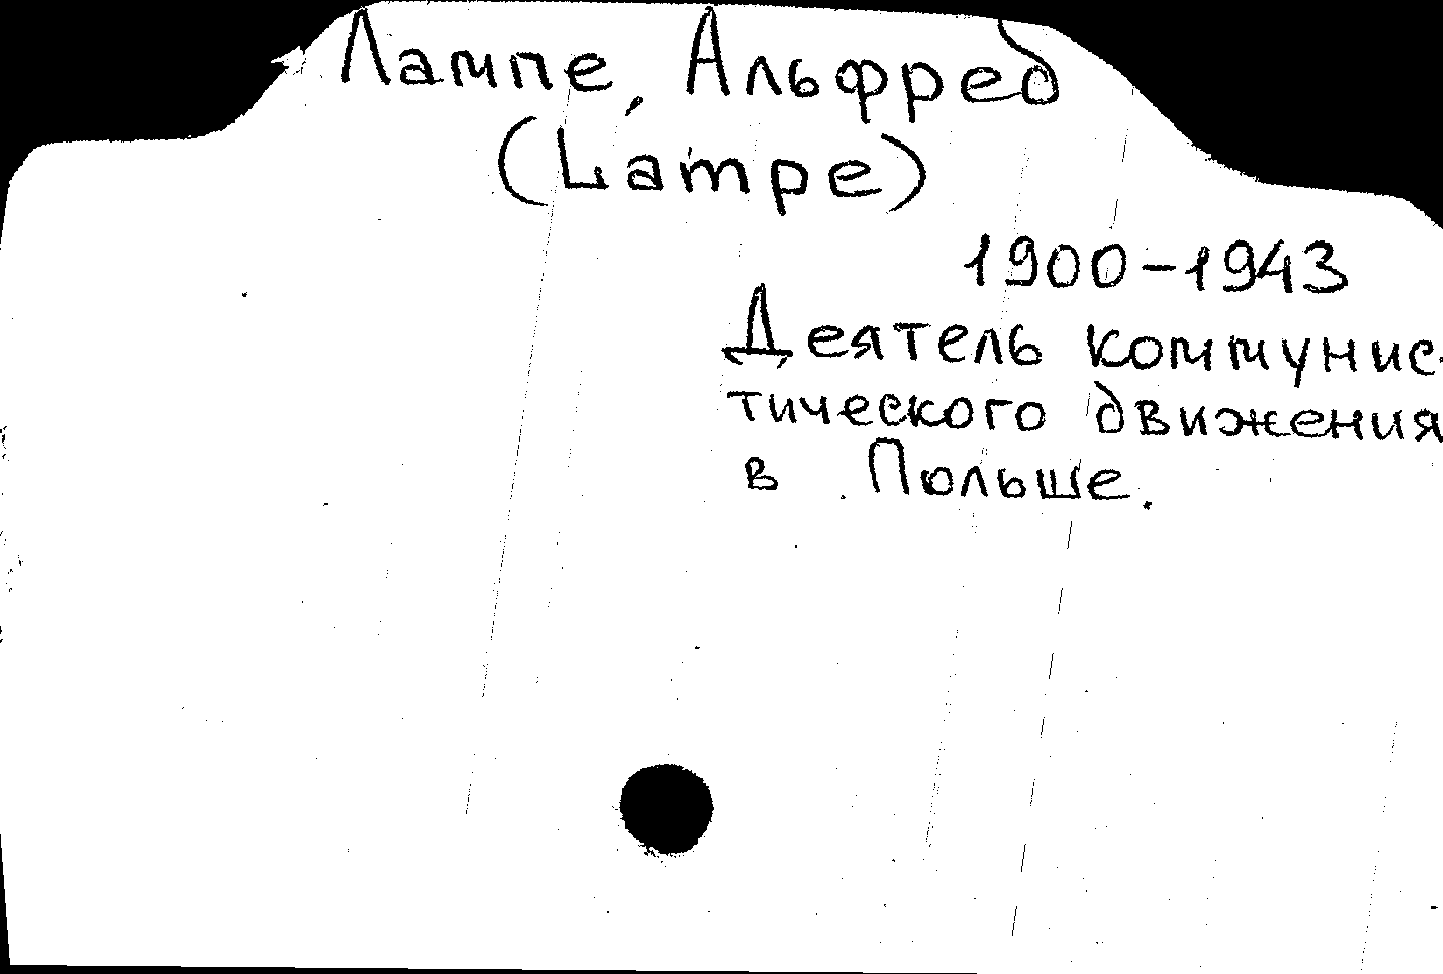 Лампе, Альфред
(Lampe)
1900-1943
Деятель коммунис-
тического движения
в Польше.